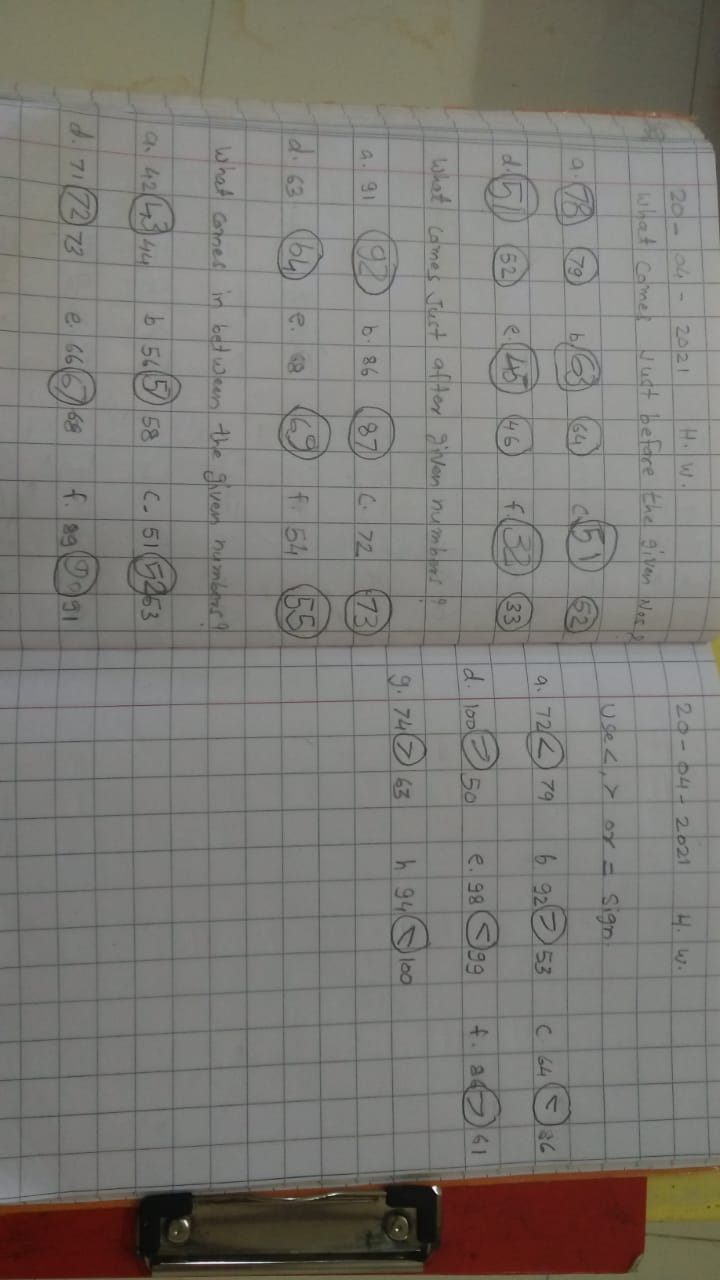 20-04-2021 H.W.
What comes Just before the given Nos?
a. 78 79 b. 63 64 c. 51 52
d. 51 52 e. 45 46 f. 32 33
What comes Just after given numbers?
a. 91 92 b. 86 87 c. 72 73
d. 63. 64 e. 68 69 f. 54 55
What comes in between the given numbers?
a. 42 43 44 b 56 57 58 c. 51 52 53
d. 71 72 73 e. 66 67 68 f. 89 90 91
20-04-2021 H.W.
Use <, > or = Sign
a. 72 < 79 b. 92 > 53 c 64 < 86
d. 100 > 50 e. 98 < 99 f. 86 > 61
g. 74 > 63 h 94 < 100